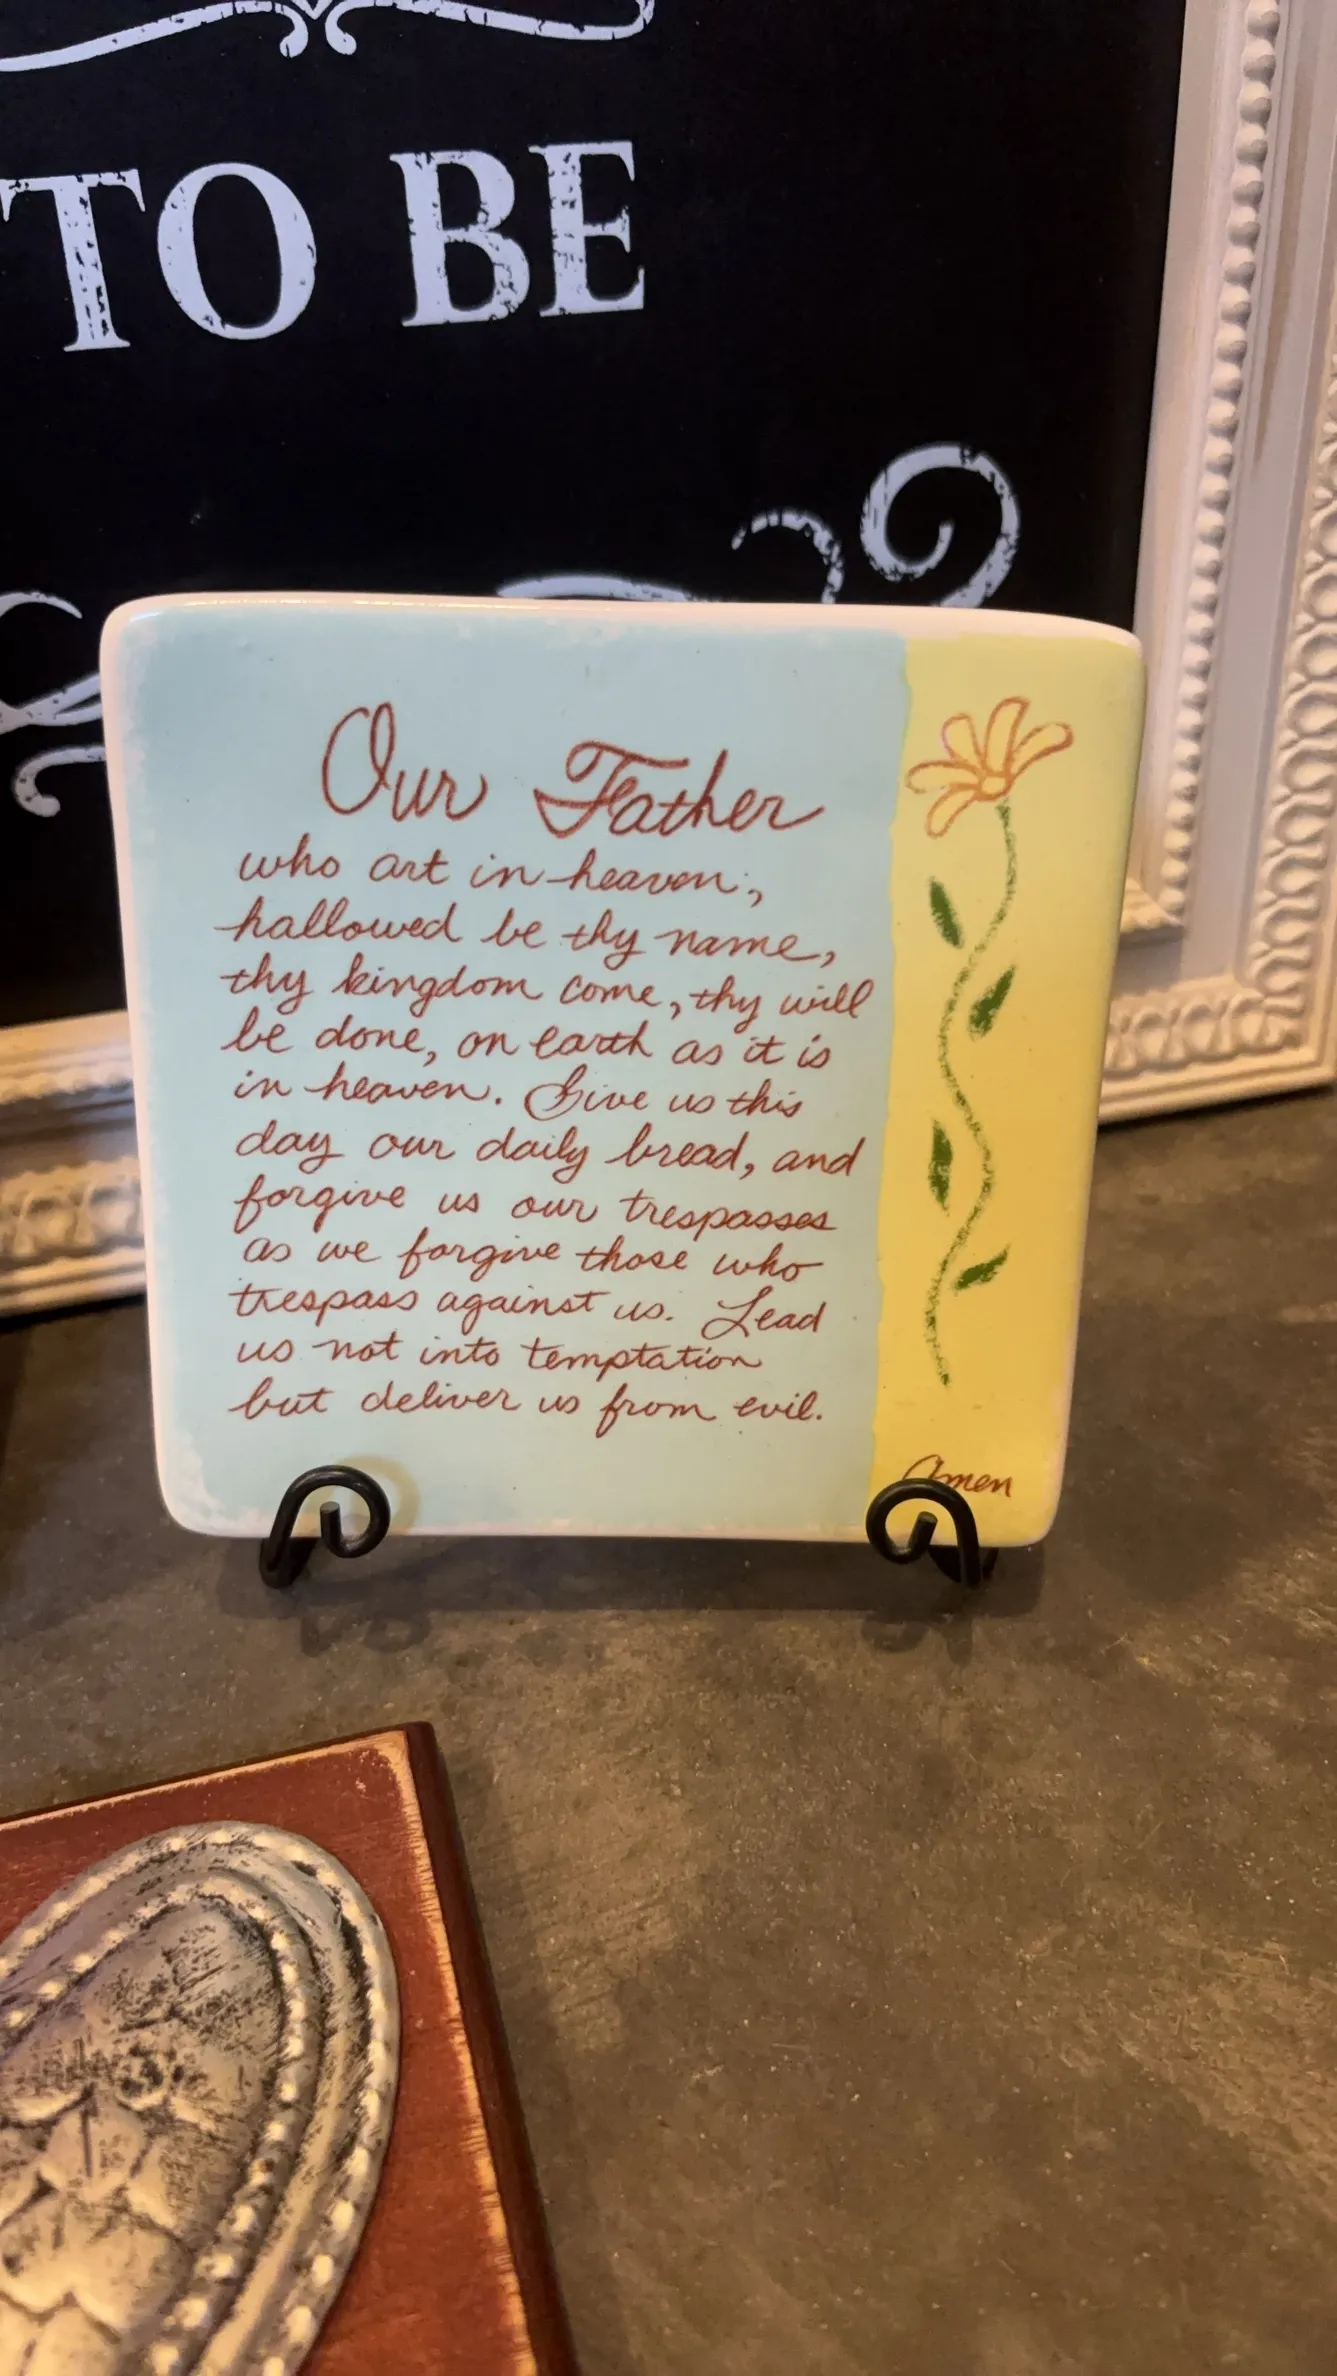 TO BE
Our Father
who art in heaven,
hallowed be thy name,
thy kingdom come, thy will
be done, on earth as it is
in heaven. Give us this
day our daily bread, and
forgive us our trespasses
as we forgive those who
trespass against us. Lead
us not into temptation
but deliver us from evil.
Amen